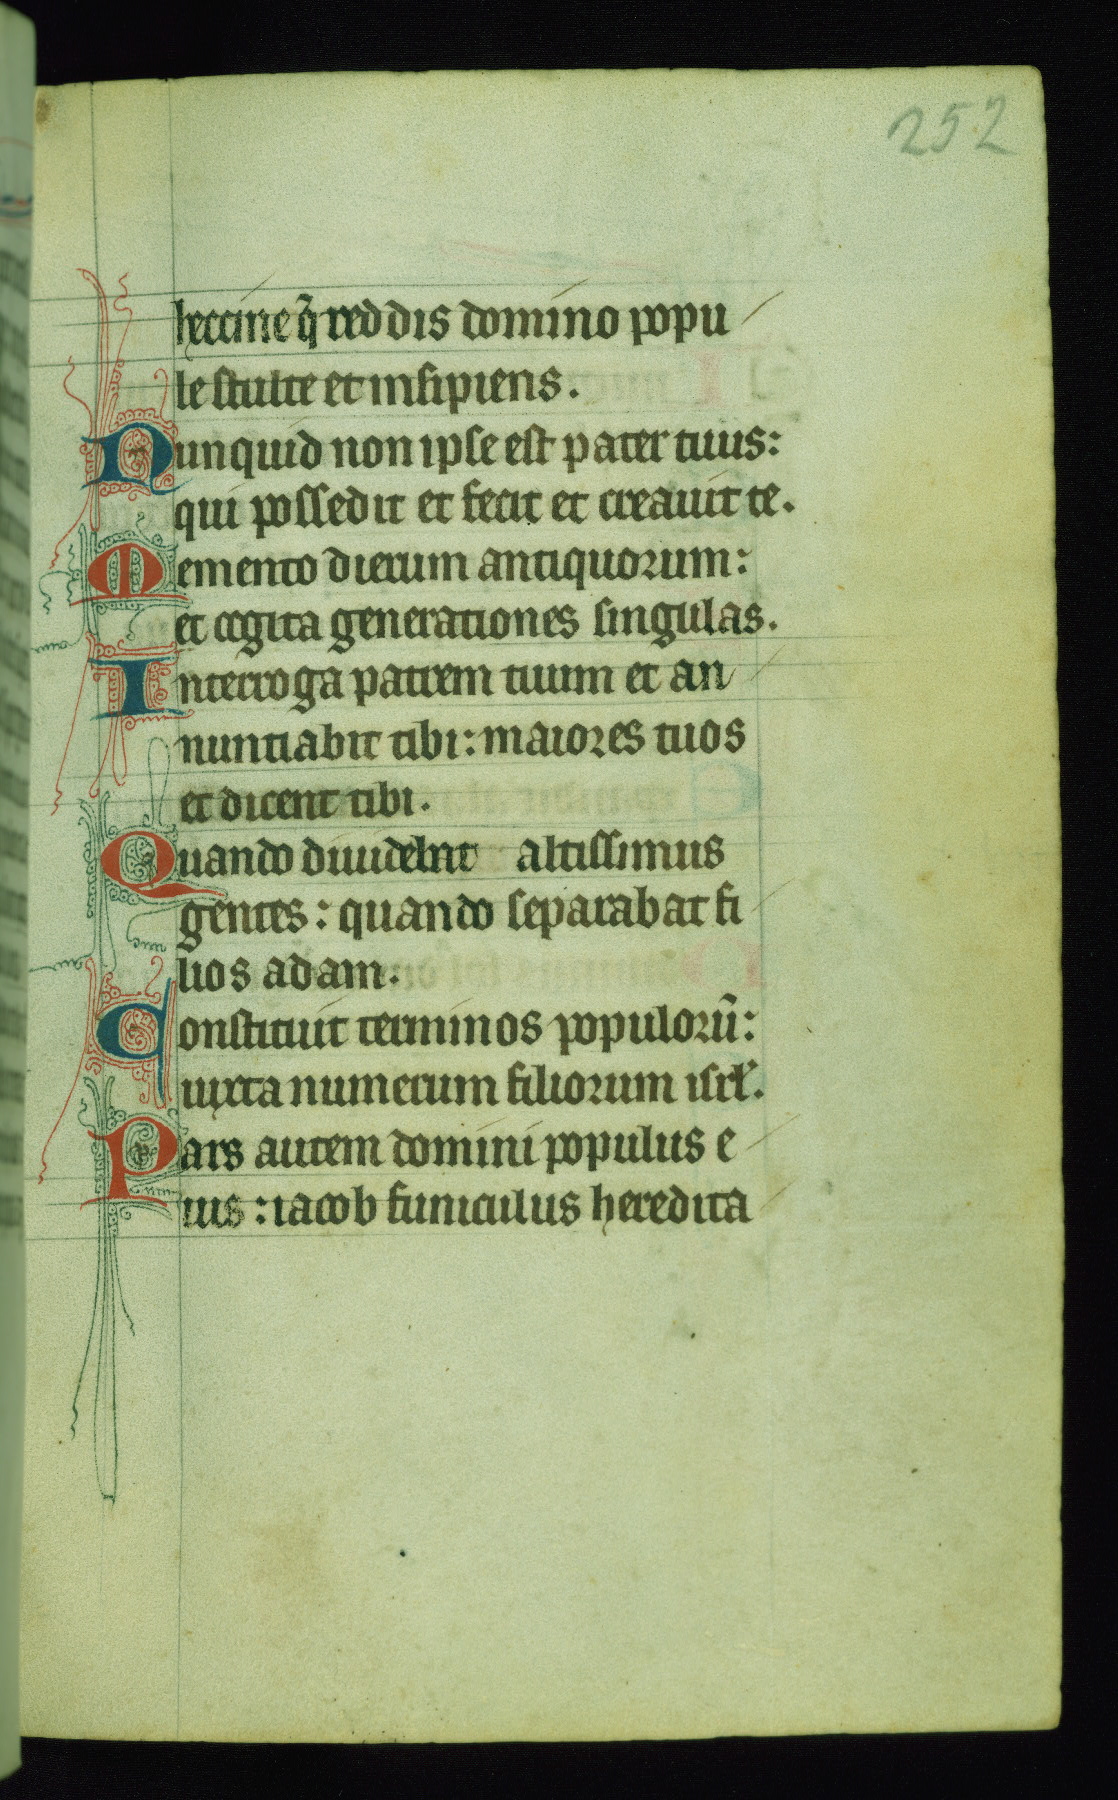 252
heccine q̃ reddis domino popu
le stulte et insipiens.
Nunquid non ipse est pater tuus:
qui possedit et fecit et creauit te.
Memento dierum antiquorum:
et cogita generationes singulas.
Interroga patrem tuum et an
nuntiabit tibi: maiores tuos
et dicent tibi.
Quando diuidebat altissimus
gentes: quando separabat fi
lios adam.
Constituit terminos populorũ:
iuxta numerum filiorum isrl'.
Pars autem domini populus e
ius: iacob funiculus heredita